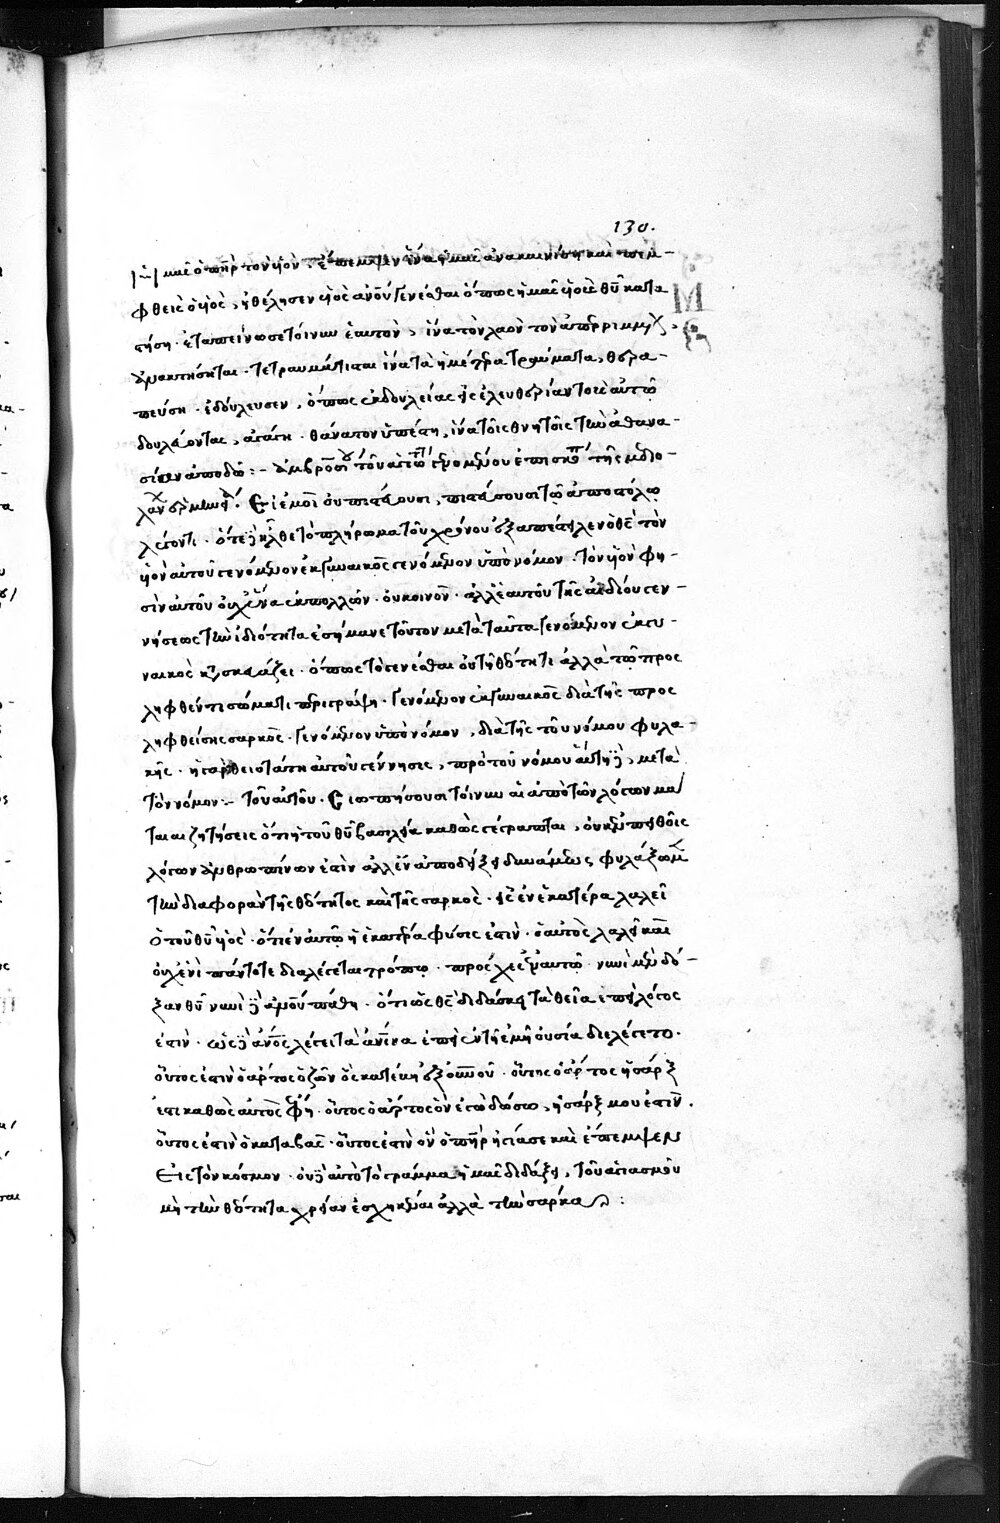 130.
ἡμᾶς ὁ πηρ τὸν υἱὸν ἔπεμψεν ἵνα ἡμᾶς ἀνακαινίση καὶ πεμ-
φθεὶς ὁ υἱὸς, ἠθέλησεν υἱὸς ἀνου γενέσθαι ὅπως ἡμᾶς υἱοὺς θυ κατα
στήση. ἐταπείνωσε τοίνυν ἑαυτὸν, ἵνα τὸν λαὸν τὸν ἀπερριμμένον
ἀνακτήσηται. τετραυμάτισται ἵνα τὰ ἡμέτερα τραύματα, θερα-
πεύση. ἐδούλευσεν, ὅπως ἐκ δουλείας εἰς ἐλευθερίαν τοὺς αὐτῶ
δουλεύοντας, ἀγάγη. θάνατον ὑπέστη, ἵνα τοῖς θνητοῖς τὴν ἀθανα-
σίαν ἀποδῶ :- Ἀμβροσίου τοῦ ἁγιωτ γενομένου ἐπισκοπ τῆς μεδιο-
λάνων Εἰ ἐμοὶ οὐ πιστεύουσι, πιστεύσουσι τῶ ἀποστόλω
λέγοντι. ὅτε δὲ ἦλθε τὸ πλήρωμα τοῦ χρόνου ἐξαπέστειλεν ὁ θς τὸν
υἱὸν αὐτοῦ γενόμενον ἐκ γυναικὸς γενόμενον ὑπὸ νόμον. τὸν υἱὸν φη-
σὶν αὐτοῦ οὐχ ἕνα ἐκ πολλῶν. οὐ κοινὸν. ἀλλ' ἑαυτοῦ τῆς ἀϊδίου γεν-
νήσεως τὴν ἰδιότητα ἐσήμανε τοῦτον μετὰ ταῦτα γενόμενον ἐκ γυ-
ναικὸς κατασκευάζει. ὅπως τὸ γενέσθαι οὐ τῆ θεότητι ἀλλὰ τῶ προς
ληφθέντι σώματι περιγράψη. γενόμενον ἐκ γυναικὸς διὰ τῆς προς
ληφθείσης σαρκὸς. γενόμενον ὑπὸ νόμον, διὰ τῆς τοῦ νόμου φυλα-
κῆς. ἡ γὰρ θειοτάτη αὐτοῦ γέννησις, πρὸ τοῦ νόμου αὕτη δὲ, μετὰ
τὸν νόμον :- τοῦ αὐτοῦ. Σιωπήσουσι τοίνυν αἱ ἀπὸ τῶν λόγων μα
ταιαι ζητήσεις ὅτι ἡ τοῦ θυ βασιλεία καθὼς γέγραπται, οὐκ ἐν πειθοῖς
λόγων ἀνθρωπίνων ἐστὶν ἀλλ' ἐν ἀποδείξει δυνάμεως φυλάξωμεν
τὴν διαφορὰν τῆς θεότητος καὶ τῆς σαρκὸς. εἷς ἐν ἑκατέρα λαλεῖ
ὁ τοῦ θυ υἱὸς. ὅτι ἐν αὐτῶ ἡ ἑκατέρα φύσις ἐστὶν. ὁ αὐτὸς λαλεῖ καὶ
οὐχ ἑνὶ πάντοτε διαλέγεται τρόπω. πρόσχες ἐν αὐτῶ. νυνὶ μὲν δό-
ξαν θυ νυνὶ δὲ ἀνου πάθη. ὅτι ὡς θς διδάσκει τὰ θεῖα ἐπεὶ λόγος
ἐστὶν. ὡς δὲ ἀνος λέγει τὰ ἀνινα ἐπεὶ ἐν τῆ ἐμῆ οὐσία διελέγετο.
οὗτος ἐστὶν ὁ ἄρτος ὁ ζῶν ὃς κατέβη ἐξ οὐνου. οὗτος ὁ ἄρτος ἡ σάρξ
ἐστι καθὼς αὐτὸς ἔφη. οὗτος ὁ ἄρτος ὃν ἐγὼ δώσω, ἡ σάρξ μου ἐστὶν.
οὗτος ἐστὶν ὁ καταβὰς. οὗτος ἐστὶν ὃν ὁ πηρ ἡγίασε καὶ ἔπεμψεν
Εἰς τὸν κόσμον. οὐδὲ αὐτὸ τὸ γράμμα ἡμᾶς διδάξει, τοῦ ἁγιασμοῦ
μὴ τὴν θεότητα χρείαν ἐσχηκέναι ἀλλὰ τὴν σάρκα :